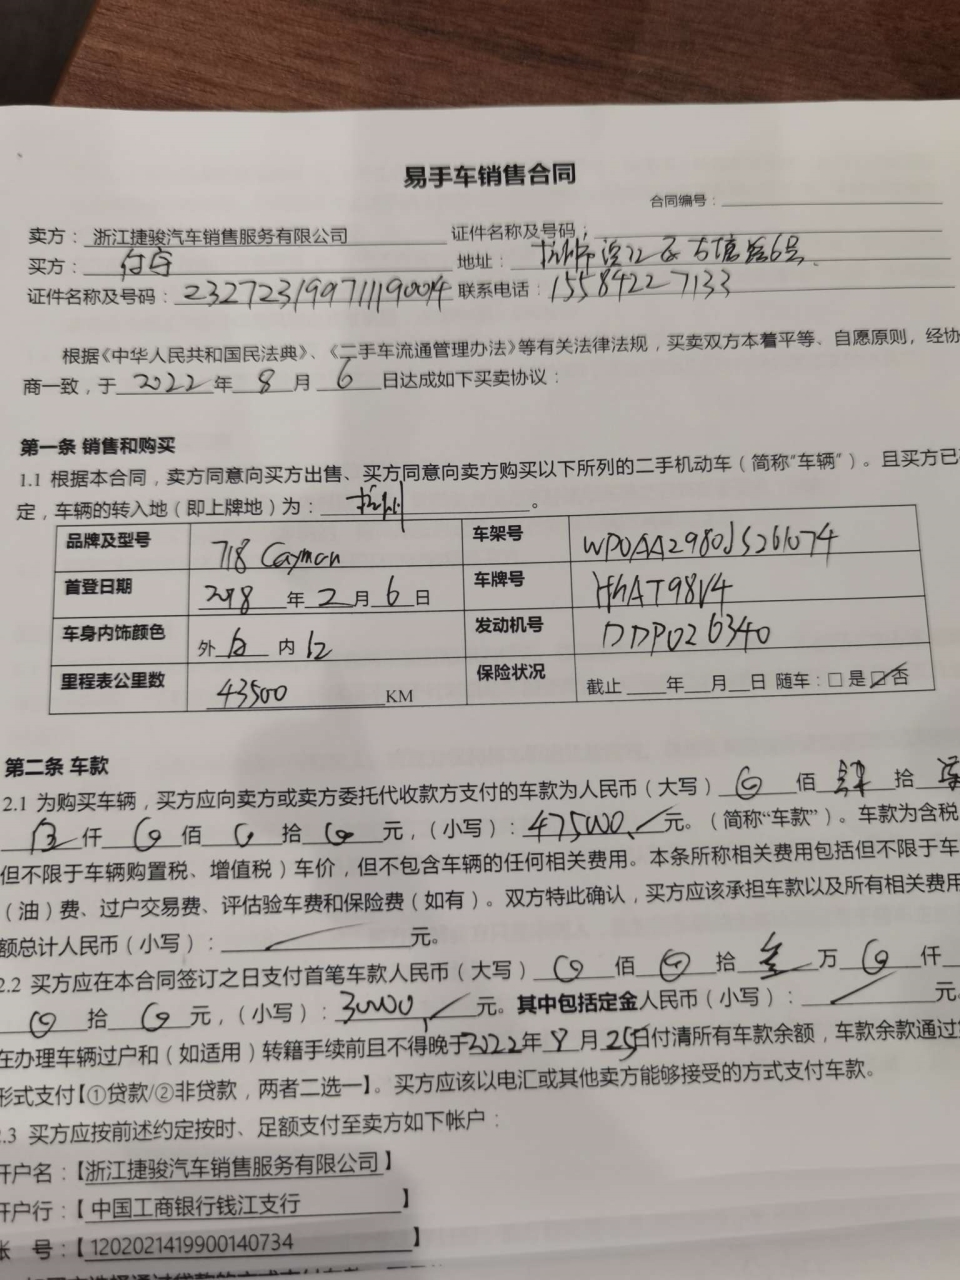 易手车销售合同
合同编号：
卖方：浙江捷骏汽车销售服务有限公司 证件名称及号码：
买方：付宇 地址：杭州市滨江区古塘路6号
证件名称及号码：232723199711190014 联系电话：15584227133
根据《中华人民共和国民法典》、《二手车流通管理办法》等有关法律法规，买卖双方本着平等、自愿原则，经协
商一致，于2022年8月6日达成如下买卖协议：
第一条 销售和购买
1.1 根据本合同，卖方同意向买方出售、买方同意向卖方购买以下所列的二手机动车（简称"车辆"）。且买方已
定，车辆的转入地（即上牌地）为：杭州。
品牌及型号 718 Cayman 车架号 WP0AA2980JS261074
首登日期 2018年2月6日 车牌号 AT98V4
车身内饰颜色 外白 内 发动机号 DDP026340
里程表公里数 43500 KM 保险状况 截止 年 月 日 随车：□是☑否
第二条 车款
2.1 为购买车辆，买方应向卖方或卖方委托代收款方支付的车款为人民币（大写） 佰 肆 拾
伍仟 佰 拾 元，（小写）：475000元。（简称"车款"）。车款为含税
但不限于车辆购置税、增值税）车价，但不包含车辆的任何相关费用。本条所称相关费用包括但不限于车
（油）费、过户交易费、评估验车费和保险费（如有）。双方特此确认，买方应该承担车款以及所有相关费用
额总计人民币（小写）： 元。
2.2 买方应在本合同签订之日支付首笔车款人民币（大写） 佰 拾 叁 万 仟
拾 元，（小写）：30000元。其中包括定金人民币（小写）： 元
在办理车辆过户和（如适用）转籍手续前且不得晚于2022年8月25日付清所有车款余额，车款余款通过
形式支付【①贷款/②非贷款，两者二选一】。买方应该以电汇或其他卖方能够接受的方式支付车款。
2.3 买方应按前述约定按时、足额支付至卖方如下帐户：
开户名：【浙江捷骏汽车销售服务有限公司】
开户行：【中国工商银行钱江支行】
账 号：【1202021419900140734】